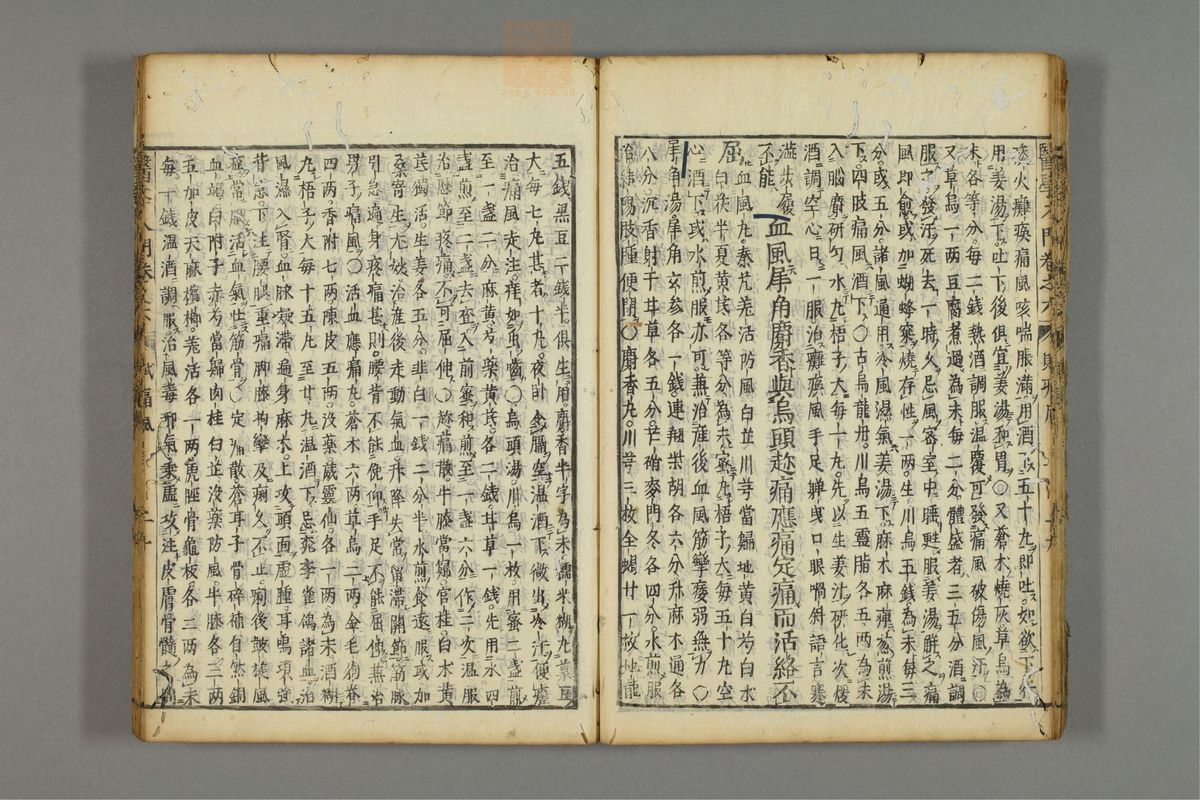 用姜湯下。吐下後俱宜姜湯和胃〇又蒼木燒灰草烏為
末各等分。每二錢熱酒調服溫覆可發痛風破傷風汗〇
又草烏一兩豆腐煮過為末每二分體盛者三五分酒調
服之發汗死去一時久忌風密室中睡甦服姜湯解之痛
風即愈或加蜘蜂窠燒存性一兩生川烏五錢為末每三
分或五分諸風通用冷風濕氣姜湯下麻木麻葱煎湯
下四肢痛風酒下〇古烏龍丹川烏五靈脂各五兩為末
入腦麝研勻水丸梧子大每一丸先以生姜汁研化次煖
酒調空心日一服治癱瘓風手足軃曳口眼喎斜語言蹇
澁步履
不能
血風犀角麝香與烏頭趂痛應痛定痛而活絡丕
屈
血風丸秦艽羌活防風白芷川芎當歸地黃白芍白
白茯半夏黃芪各等分為末蜜丸梧子大每五十丸空
心酒下或水煎服亦可兼治産後血風筋攣痿弱無力〇
犀角湯犀角玄參各一錢連翹柴胡各六分升麻木通各
八分沉香射干甘草各五分芒硝麥門冬各四分水煎服
結陽肢腫便閉〇麝香丸川芎三枚全蝎廿一枚地龍
五錢黑豆二錢半俱生用麝香半字為末糯米糊丸菉豆
大每七丸甚者十丸夜卧令膈空溫酒下微出冷汗便瘥
治痛風走注痒如虫嚙〇烏頭湯川烏一枚用蜜二盞煎
至一盞二分麻黃芍藥黃芪各二錢甘草一錢先用水四
盞煎至二盞去至入前蜜和煎至一盞六分作二次溫服
治歷節疼痛不可屈伸〇趂痛散牛膝當歸官桂白木黃
芪獨活生姜各五分韭白一錢二分半水煎食遠服或加
桑寄生尢妙治産後走動氣血升降失常留滯關節筋脉
引急遍身疼痛甚則腰背不能俛仰手足不能屈伸兼治
男子痛風〇活血應痛丸蒼木六兩草烏二兩金毛狗脊
四兩香附七兩陳皮五兩没藥威靈仙各一兩為末酒糊
丸梧子大每十五丸至廿丸溫酒下忌桃李雀鴿諸血治
風濕入腎血脉凝滯遍身麻木上攻頭面虛腫耳鳴項強
背急下注腰腿重痛脚膝拘攣及痢久不止痢後皷搥風
常服活血氣壯筋骨〇定痛散蒼耳子骨碎補自然銅
血竭白附子赤芍當歸肉桂白芷没藥防風牛膝各三兩
五加皮天麻檳榔羌活各一兩虎脛骨龜板各二兩為末
每一錢溫酒調服治風毒邪氣乘虛攻注皮膚骨髓之